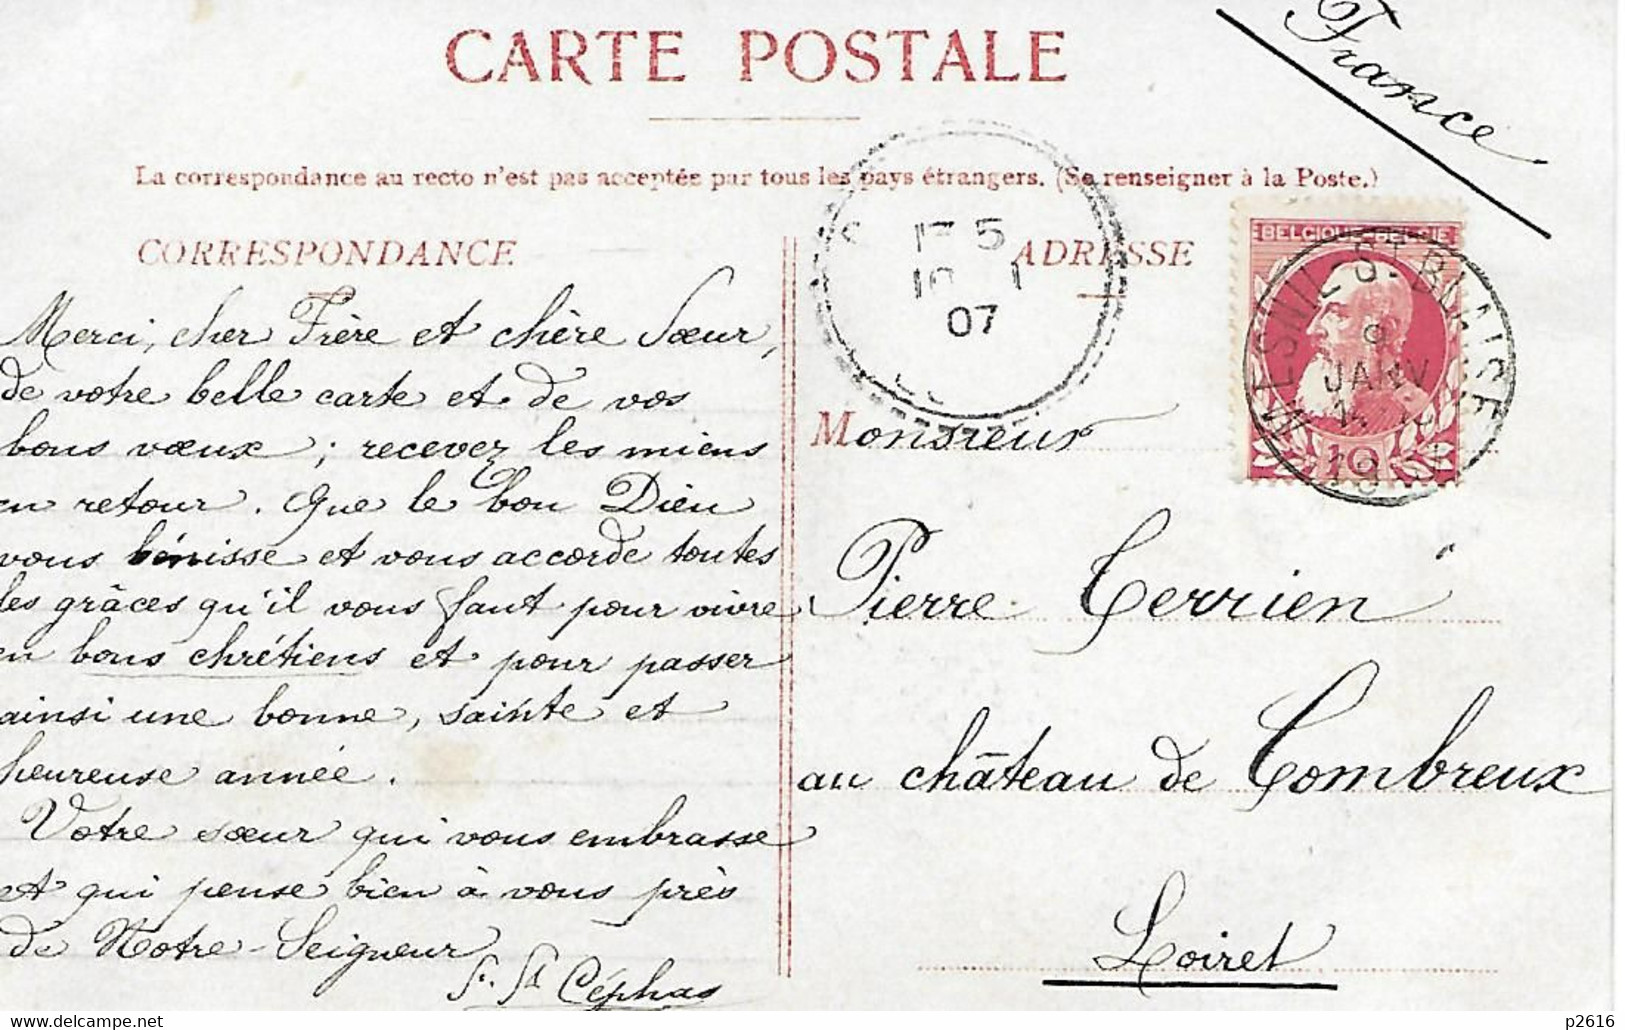 CARTE POSTALE
France
La correspondance au recto n'est pas acceptée par tous les pays étrangers. (Se renseigner à la Poste.)
CORRESPONDANCE
Merci, cher Frère et chère Sœur,
de votre belle carte et de vos
bons vœux ; recevez les miens
en retour. Que le bon Dieu
vous bénisse et vous accorde toutes
les grâces qu'il vous faut pour vivre
en bons chrétiens et pour passer
ainsi une bonne, sainte et
heureuse année.
Votre sœur qui vous embrasse
et qui pense bien à vous près
de Notre-Seigneur
Sr. St Céphas
ADRESSE
17 5
10 1
07
BELGIQUE BELGIE
MESNIL-ST-BLAISE
9
JANV
10
Monsieur
Pierre Terrien
au château de Combreux
Loiret
www.delcampe.net
p2616